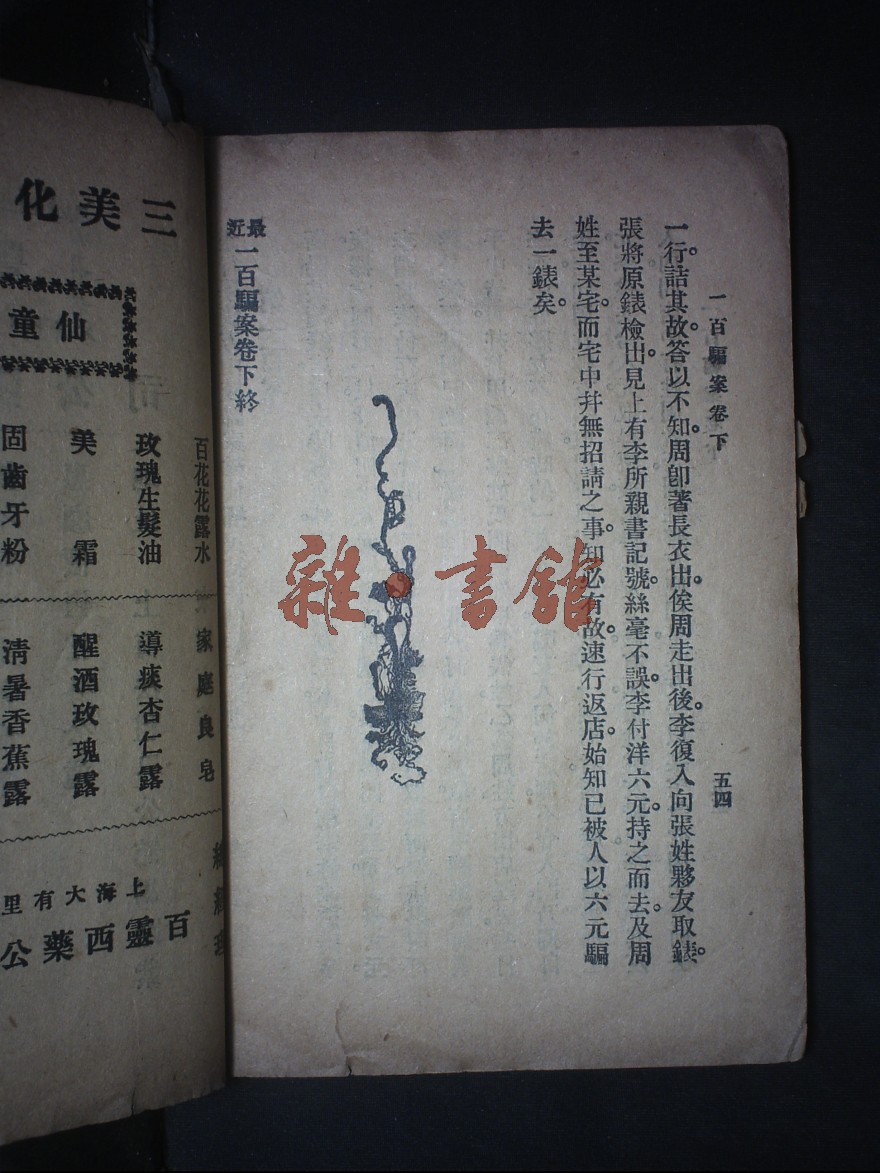 一百騙案卷下
五四
一行。詰其故。答以不知。周卽著長衣出。俟周走出後。李復入向張姓夥友取錶。
張將原錶檢出。見上有李所親書記號。絲毫不誤。李付洋六元。持之而去。及周
姓至某宅。而宅中幷無招請之事。知必有故。速行返店。始知已被人以六元騙
去一錶矣。
最近一百騙案卷下終
雜·書館
三美化
仙童
百花花露水
玫瑰生髮油
美 霜
固齒牙粉
家庭良皂
導痰杏仁露
醒酒玫瑰露
淸暑香蕉露
上海大有里
百靈西藥公